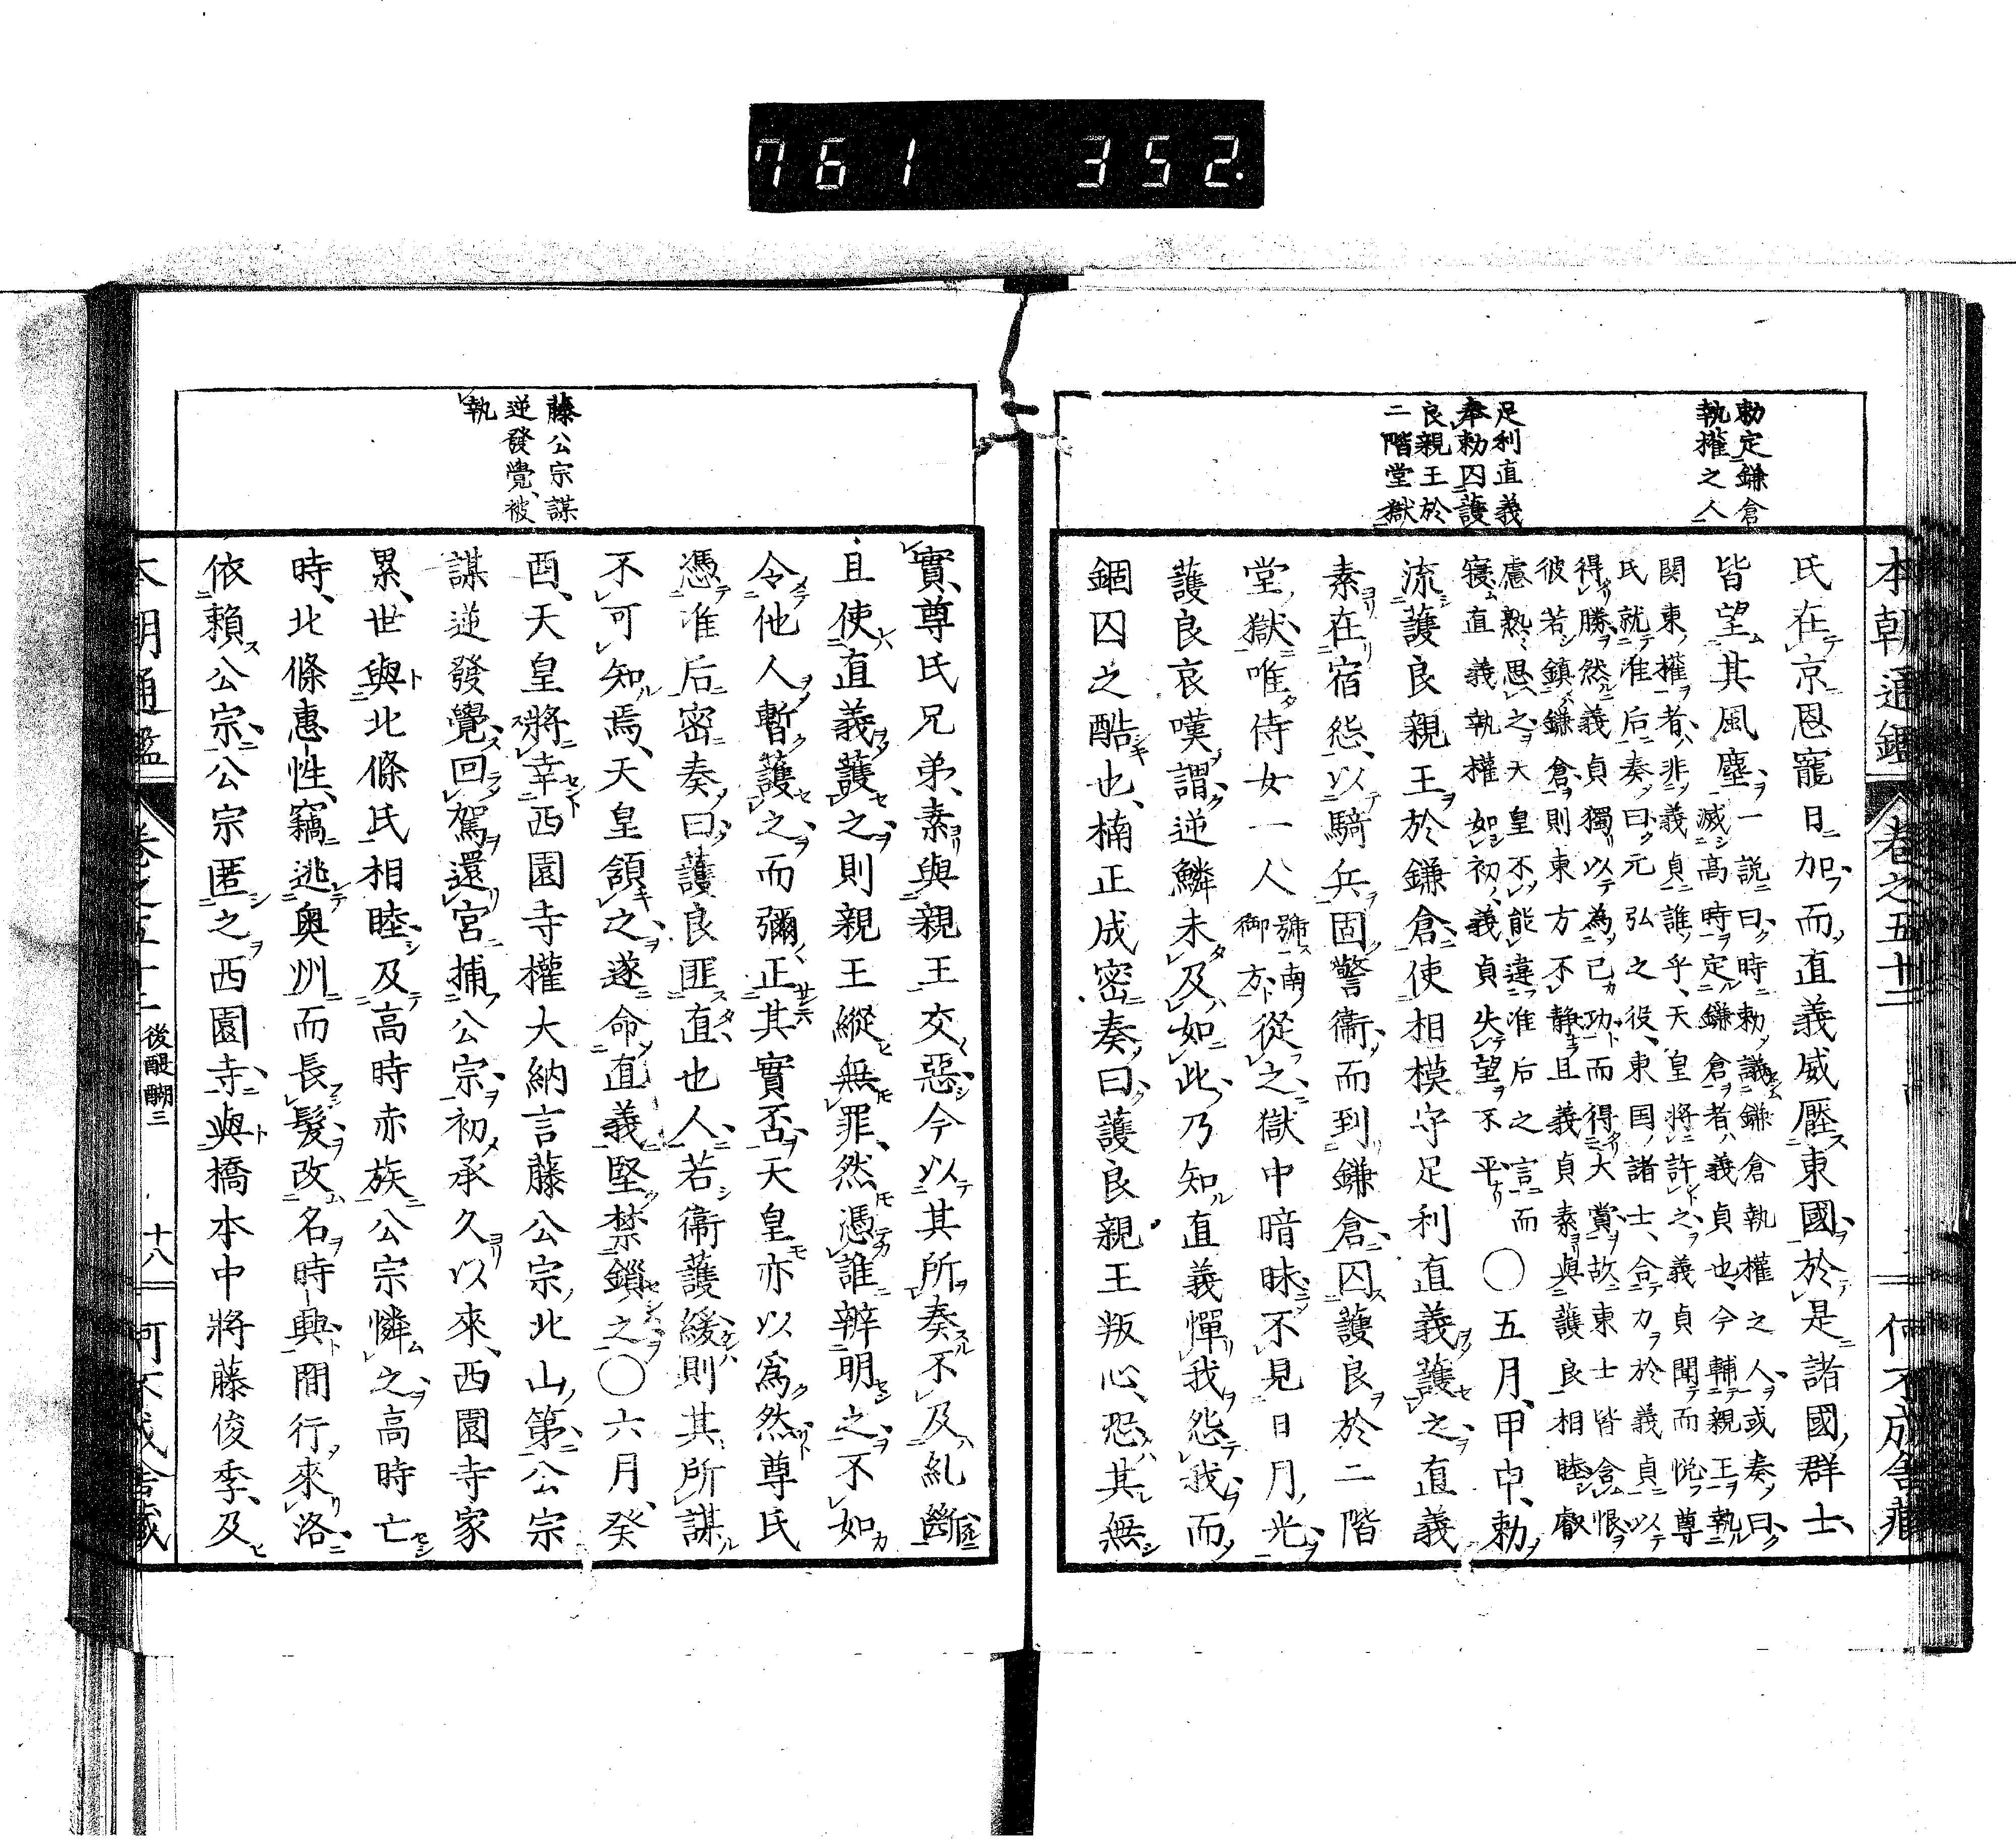 761 352.
本朝通鑑 卷之五十二
勅定鎌倉
執權之人
足利直義
奉勅囚護
良親王於
二階堂獄
氏在京恩寵日加而直義威壓東國於是諸國群士
皆望其風塵
一說曰時勅議鎌倉執權之人或奏曰
滅高時定鎌倉者義貞也今輔親王執
関東權者非義貞誰乎天皇將許之義貞聞而悦尊
氏就准后奏曰元弘之役東国諸士合力於義貞以
得勝然義貞獨以為己功而得大賞故東士皆含恨
彼若鎮鎌倉則東方不静且義貞素與護良相睦叡
慮熟思之天皇不能違准后之言而
寢直義執權如初義貞失望不平
〇五月甲申勅
流護良親王於鎌倉使相模守足利直義護之直義
素在宿怨以騎兵固警衞而到鎌倉囚護良於二階
堂獄唯侍女一人
號南
御方
從之獄中暗昧不見日月光
護良哀嘆謂逆鱗未及如此乃知直義憚我怨我而
錮囚之酷也楠正成密奏曰護良親王叛心恐其無
藤公宗謀
逆發覺被
執
實尊氏兄弟素與親王交惡今以其所奏不及糺斷
且使直義護之則親王縱無罪然憑誰辨明之不如
令他人暫護之而彌正其實否天皇亦以爲然尊氏
憑准后密奏曰護良匪直也人若衞護緩則其所謀
不可知焉天皇頷之遂命直義堅禁鎖之〇六月癸
酉天皇將幸西園寺權大納言藤公宗北山第公宗
謀逆發覺回駕還宮捕公宗初承久以來西園寺家
累世與北條氏相睦及高時赤族公宗憐之高時亡
時北條惠性竊逃奥州而長髮改名時興間行來洛
依賴公宗公宗匿之西園寺與橋本中將藤俊季及
後醍醐三 十八